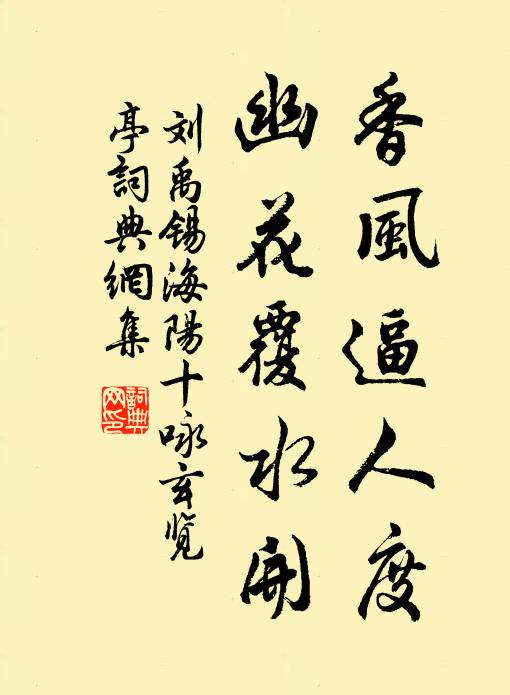 香風逼人度
幽花覆水開
刘禹锡海陽十咏玄覧
亭詞典網集
詞典
网印